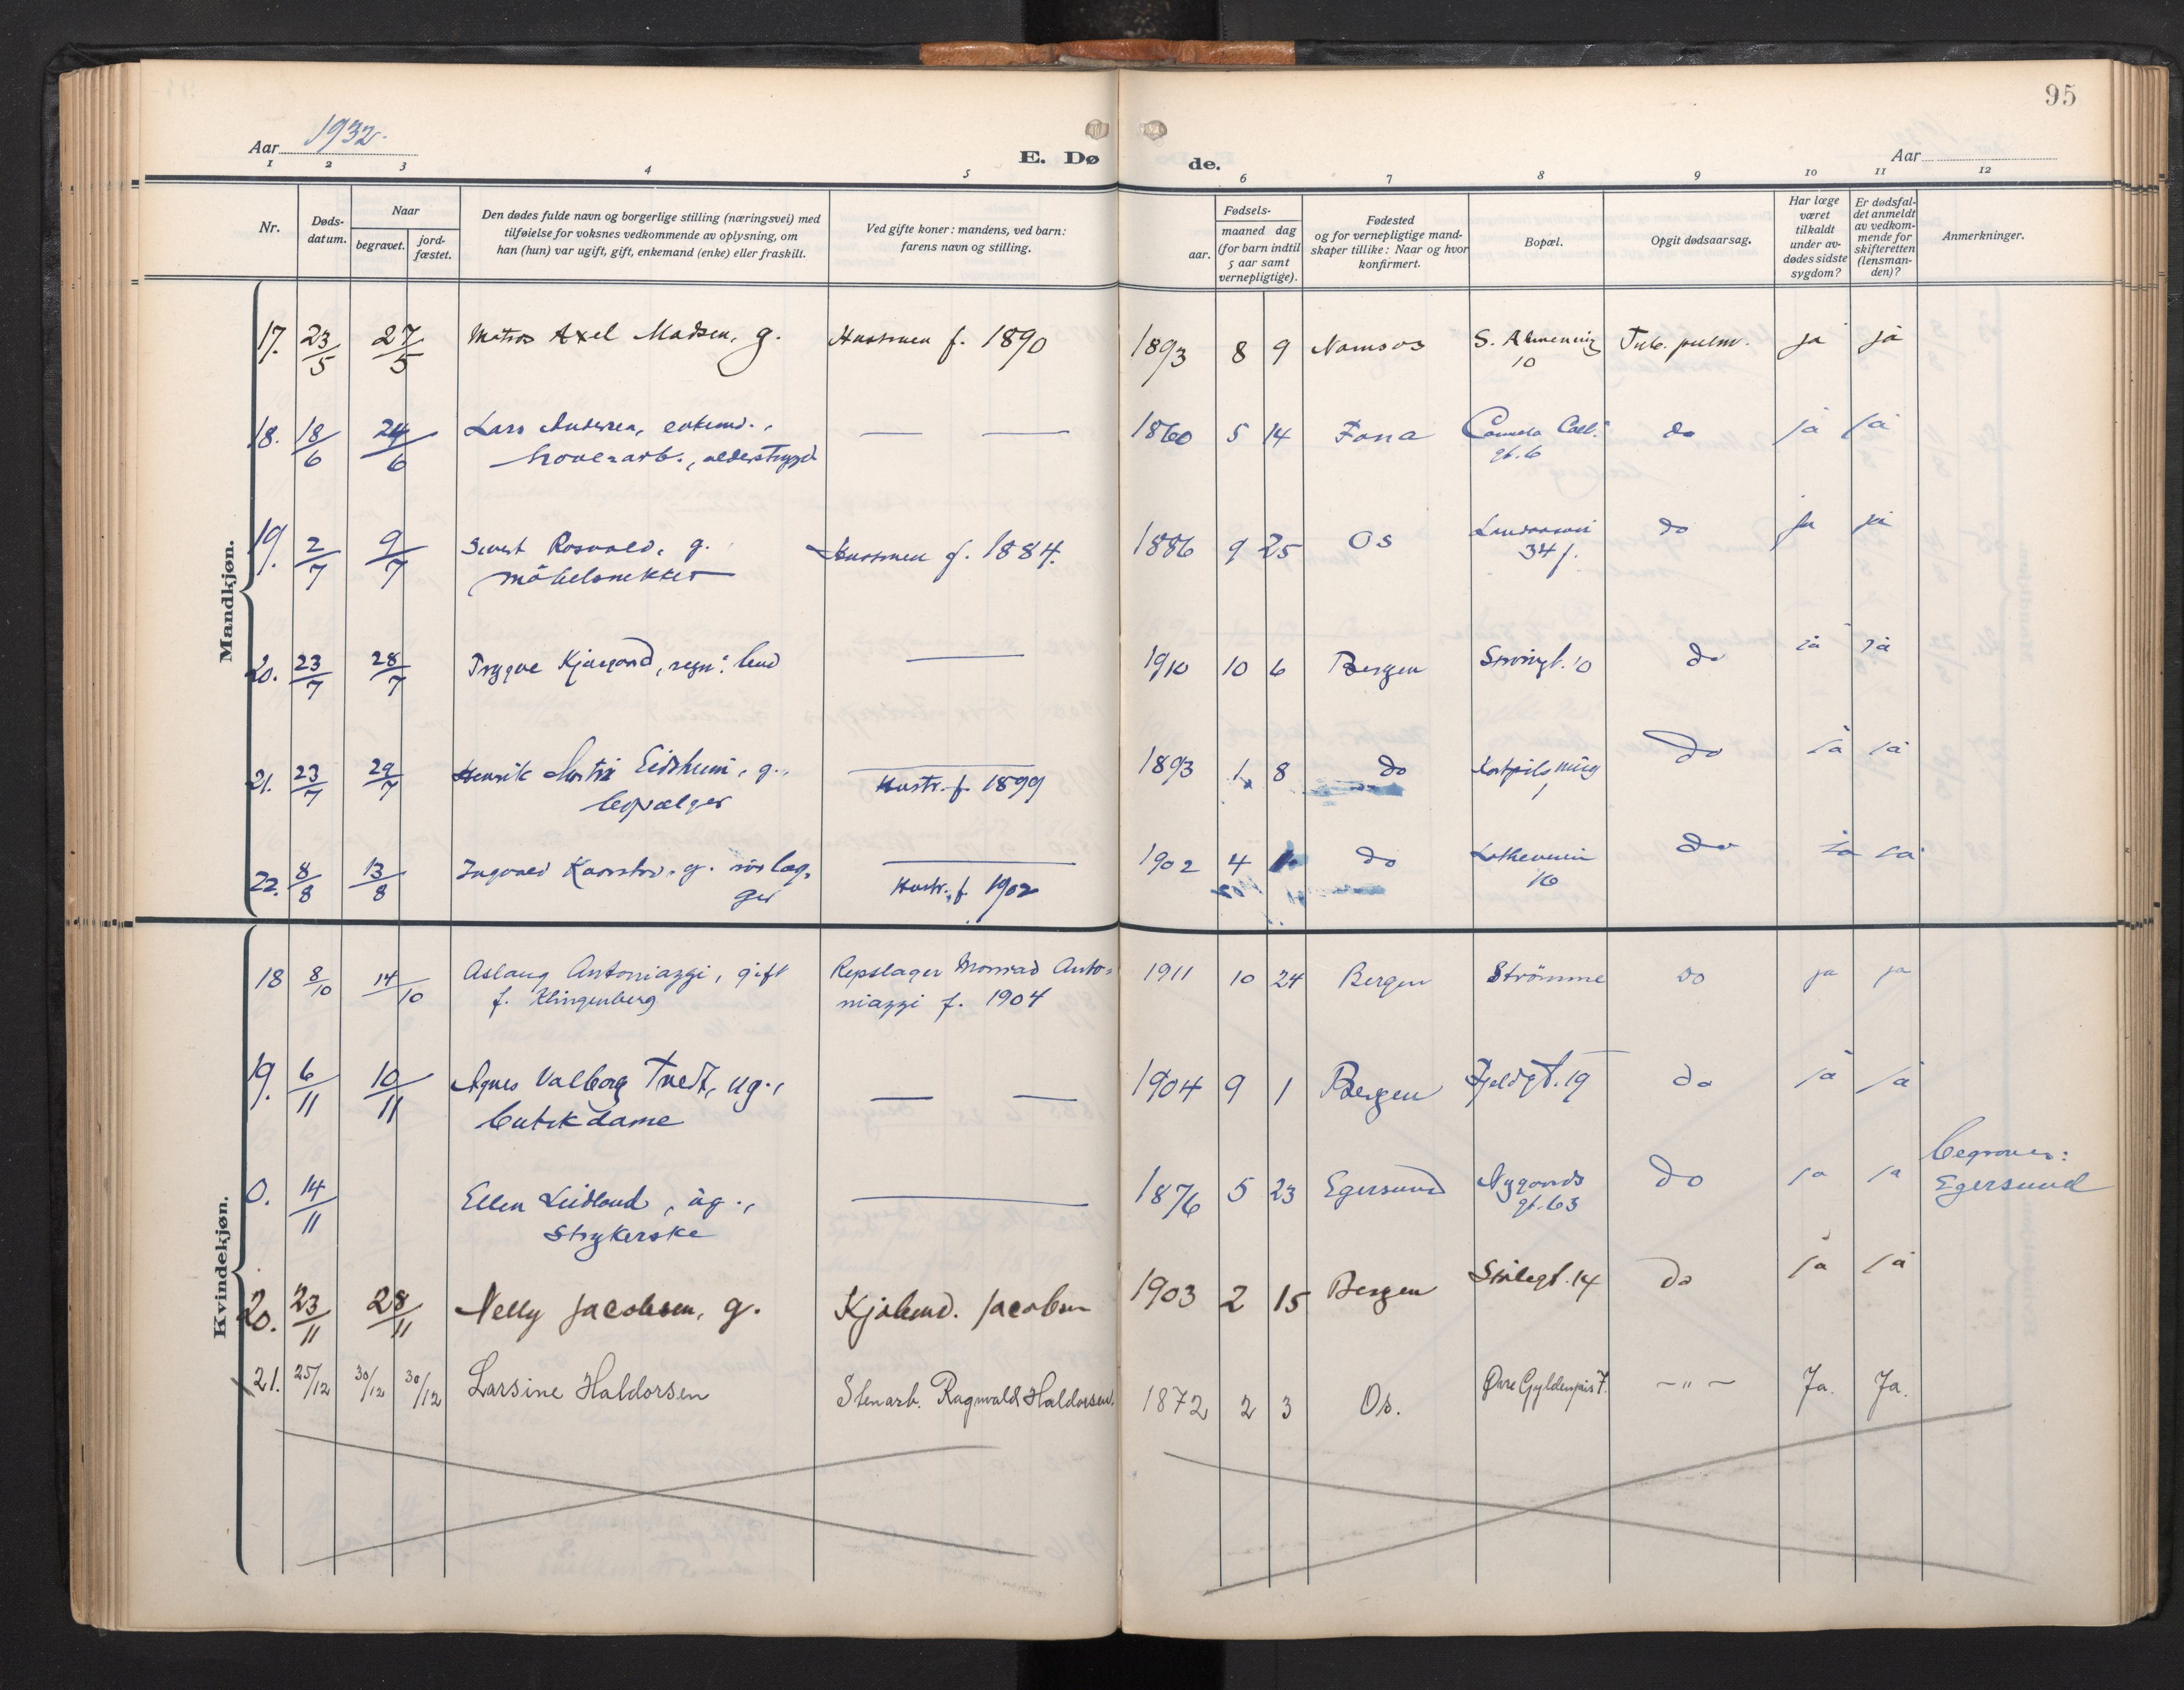 95
Aar 1932.
E. Dø
de.
Aar
1 2 3 4 5 6 7 8 9 10 11 12
Nr.
Døds-
datum.
Naar
begravet.
jord-
fæstet.
Den dødes fulde navn og borgerlige stilling (næringsvei) med
tilføielse for voksnes vedkommende av oplysning, om
han (hun) var ugift, gift, enkemand (enke) eller fraskilt.
Ved gifte koner: mandens, ved barn:
farens navn og stilling.
Fødsels-
aar.
maaned dag
(for barn indtil
5 aar samt
vernepligtige).
Fødested
og for vernepligtige mand-
skaper tillike: Naar og hvor
konfirmert.
Bopæl.
Opgit dødsaarsag.
Har læge
været
tilkaldt
under av-
dødes sidste
sygdom?
Er dødsfal-
det anmeldt
av vedkom-
mende for
skifteretten
(lensman-
den)?
Anmerkninger.
Mandkjøn.
17. 23/5 27/5 Matros Axel Madsen, g. Hustruen f. 1890 1893 8 9 Namsos S. Almenning Tub. pulm. ja ja
10
18. 18/6 24/6 Lars Andersen, enkemd., — — 1860 5 14 Fana do ja ja
gt. 6
alderstrygd
19. 2/7 9/7 Sivert Rosvold, g. Hustruen f. 1884. 1886 9 25 Os do ja ja
møbelsnekker 34 f.
20. 23/7 28/7 Trygve Kjærgård, — 1910 10 6 Bergen 10 do ja ja
21. 23/7 29/7 Henrik Eidsheim, g., Hustr. f. 1899 1893 1 8 do do ja ja
1
22. 8/8 13/8 Ingvald g. rørlæg- Hustr. f. 1902 1902 4 do do ja ja
ger 16
Kvindekjøn.
18 8/10 14/10 Aslaug Antoniazzi, gift Repslager Monrad Anto- 1911 10 24 Bergen Strömme do ja ja
f. Klingenberg niazzi f. 1904
19. 6/11 10/11 Agnes Valborg Tvedt, ug., — — 1904 9 1 Bergen Fjeldgt. 19 do ja ja
butikdame
0. 14/11 Ellen Leidland, ug., — 1876 5 23 Egersund Nygaards do ja ja begraves:
Strykerske gt. 63 Egersund
20. 23/11 28/11 Nelly Jacobsen, g. Kjøbmd. Jacobsen 1903 2 15 Bergen 14 do ja ja
21. 25/12 30/12 30/12 Larsine Haldorsen Stenarb. Ragnvald Haldorsen. 1872 2 3 Os. Øvre Gyldenpris 7. — " — Ja. Ja.